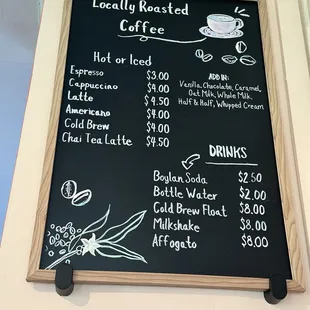 Locally Roasted
Coffee
Hot or Iced
Espresso $3.00
Cappuccino $4.00
Latte $4.50
Americano $4.00
Cold Brew $4.00
Chai Tea Latte $4.50
ADD IN:
Vanilla, Chocolate, Caramel,
Oat Milk, Whole Milk,
Half & Half, Whipped Cream
DRINKS
Boylan Soda $2.50
Bottle Water $2.00
Cold Brew Float $8.00
Milkshake $8.00
Affogato $8.00